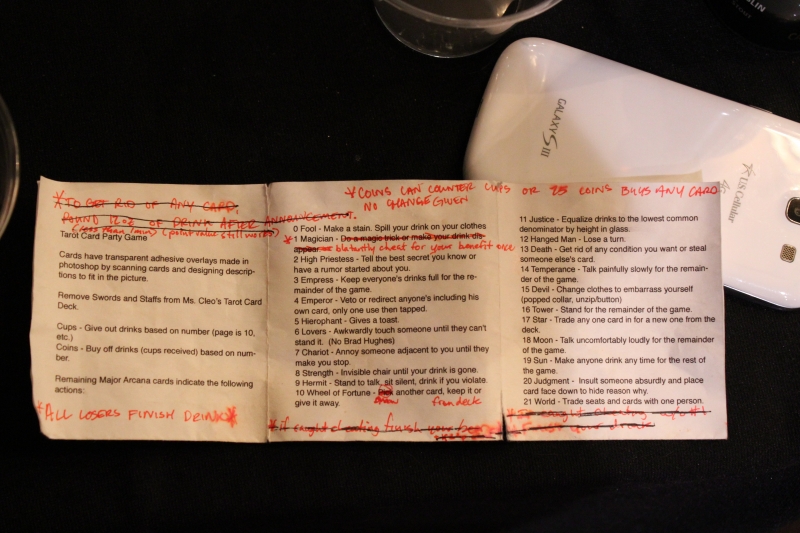 *TO GET RID OF ANY CARD,
POUND 12oz OF DRINK AFTER ANNOUNCEMENT.
(less than 1 min)
Tarot Card Party Game
Cards have transparent adhesive overlays made in
photoshop by scanning cards and designing descrip-
tions to fit in the picture.
Remove Swords and Staffs from Ms. Cleo's Tarot Card
Deck.
Cups - Give out drinks based on number (page is 10,
etc.)
Coins - Buy off drinks (cups received) based on num-
ber.
Remaining Major Arcana cards indicate the following
actions:
*ALL LOSERS FINISH DRINK*
*COINS CAN COUNTER CUPS OR 25 COINS BUYS ANY CARD
NO CHANGE GIVEN
0 Fool - Make a stain. Spill your drink on your clothes
*1 Magician - Do a magic trick or make your drink dis-
appear. blatantly cheat for your benefit once
2 High Priestess - Tell the best secret you know or
have a rumor started about you.
3 Empress - Keep everyone's drinks full for the re-
mainder of the game.
4 Emperor - Veto or redirect anyone's including his
own card, only one use then tapped.
5 Hierophant - Gives a toast.
6 Lovers - Awkwardly touch someone until they can't
stand it. (No Brad Hughes)
7 Chariot - Annoy someone adjacent to you until they
make you stop.
8 Strength - Invisible chair until your drink is gone.
9 Hermit - Stand to talk, sit silent, drink if you violate.
10 Wheel of Fortune - another card, keep it or
give it away. Draw from deck
*if caught cheating finish your
11 Justice - Equalize drinks to the lowest common
denominator by height in glass.
12 Hanged Man - Lose a turn.
13 Death - Get rid of any condition you want or steal
someone else's card.
14 Temperance - Talk painfully slowly for the remain-
der of the game.
15 Devil - Change clothes to embarrass yourself
(popped collar, unzip/button)
16 Tower - Stand for the remainder of the game.
17 Star - Trade any one card in for a new one from the
deck.
18 Moon - Talk uncomfortably loudly for the remainder
of the game.
19 Sun - Make anyone drink any time for the rest of
the game.
20 Judgment - Insult someone absurdly and place
card face down to hide reason why.
21 World - Trade seats and cards with one person.
*If caught cheating
Finish your drink
GALAXY S III
4G
US Cellular